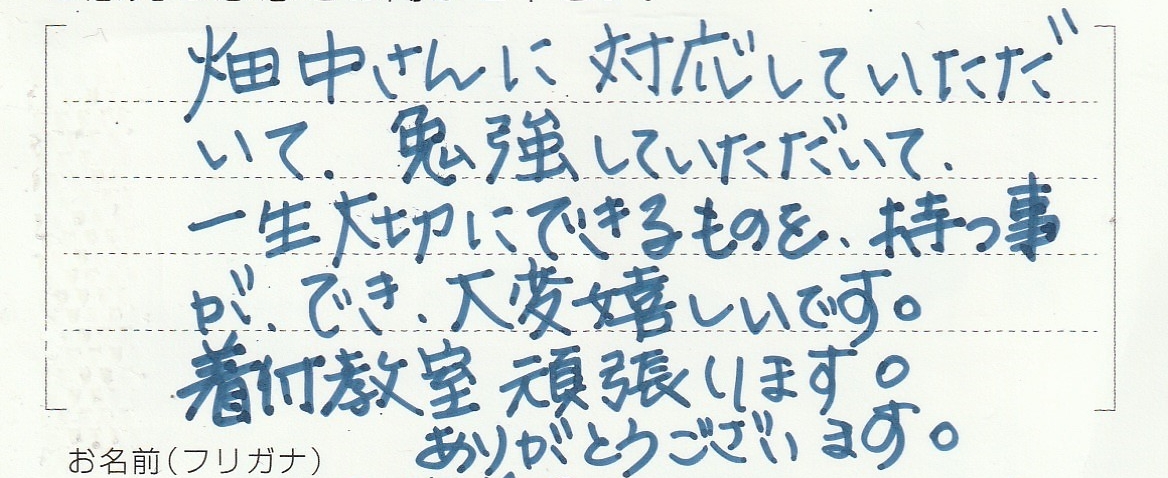 畑中さんに対応していただ
いて、勉強していただいて、
一生大切にできるものを、持つ事
が、でき、大変嬉しいです。
着付教室 頑張ります。
ありがとうございます。
お名前(フリガナ)